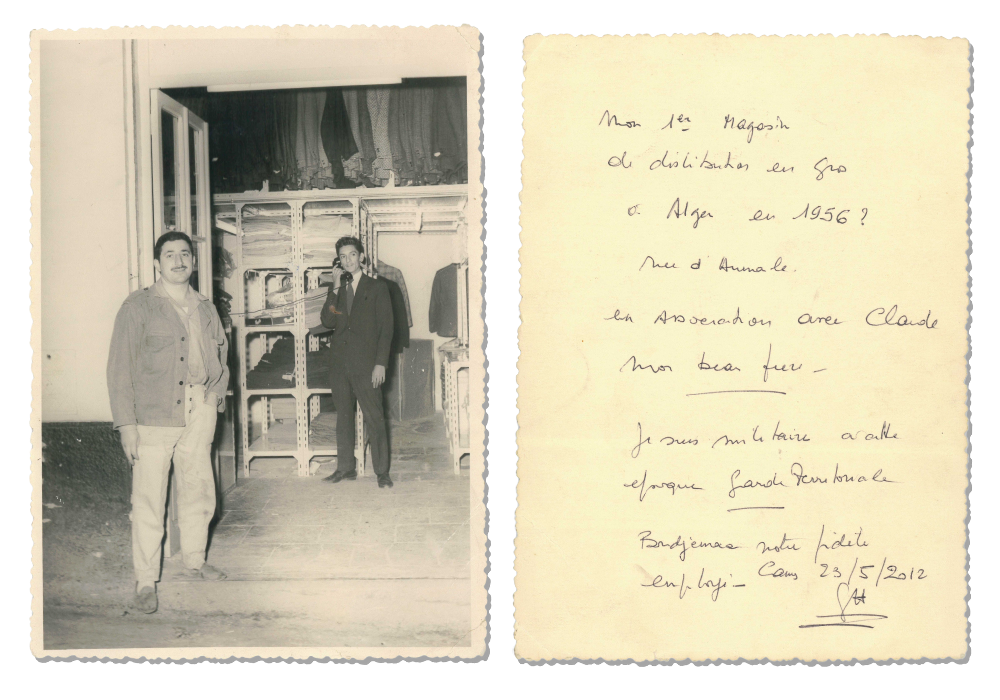 Mon 1er Magasin
de distribution en gro
à Alger en 1956?
rue d'Aumale.
en Association avec Claude
mon beau frère –
Je suis militaire à cette
époque Garde Territoriale
Boudjemaa notre fidèle
employé – Cans 23/5/2012